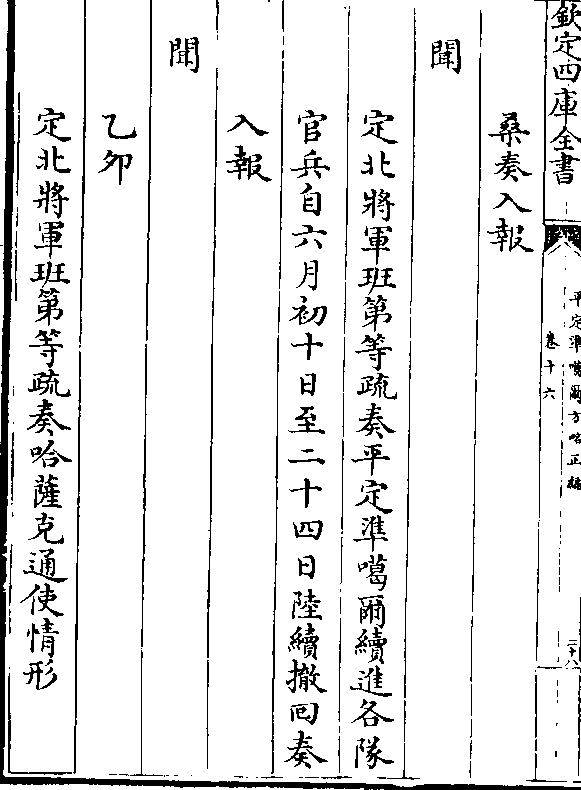 欽定四庫全書
平定準噶爾方略正編
卷十六
桑奏入報
聞
定北將軍班第等疏奏平定準噶爾續進各隊
官兵自六月初十日至二十四日陸續撤囘奏
入報
聞
乙夘
定北將軍班第等疏奏哈薩克通使情形